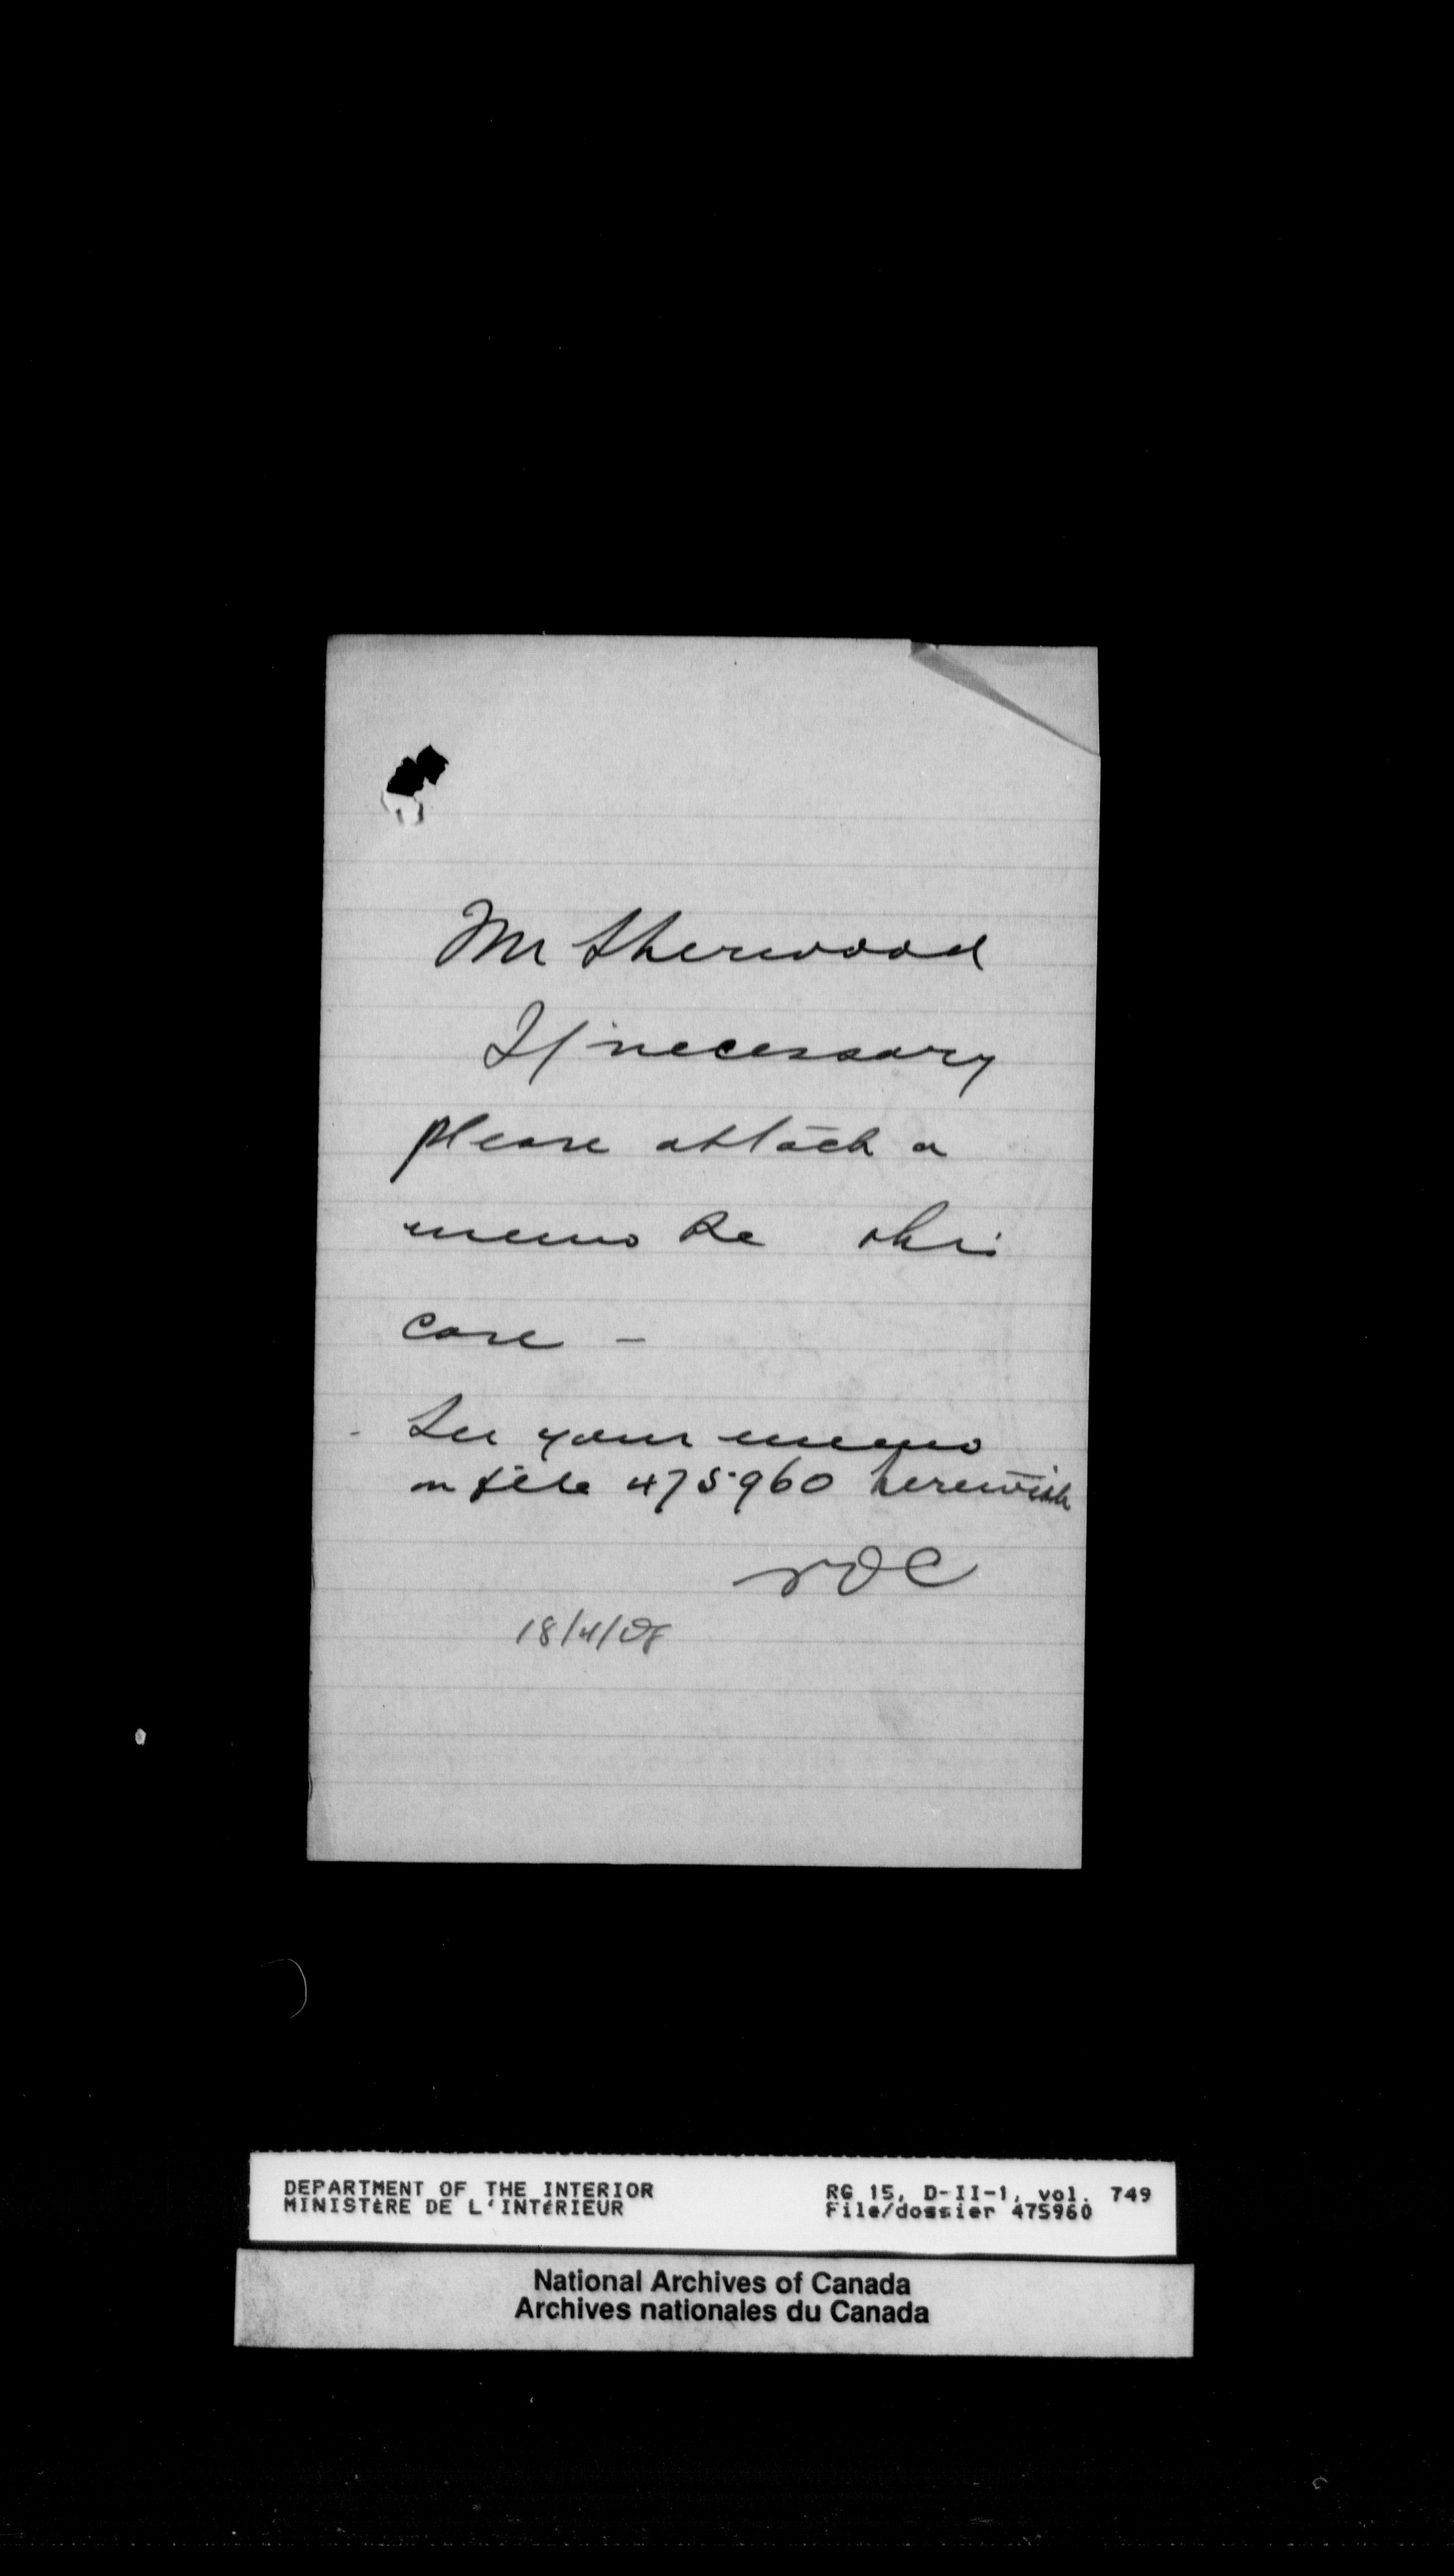 Mr Sherwood
If necessary
please attach a
memo Re this
case -
- See your memo
on file 475960 herewith
18/4/08
DEPARTMENT OF THE INTERIOR
MINISTÈRE DE L'INTÉRIEUR
RG 15, D-II-1, vol. 749
File/dossier 475960
National Archives of Canada
Archives nationales du Canada